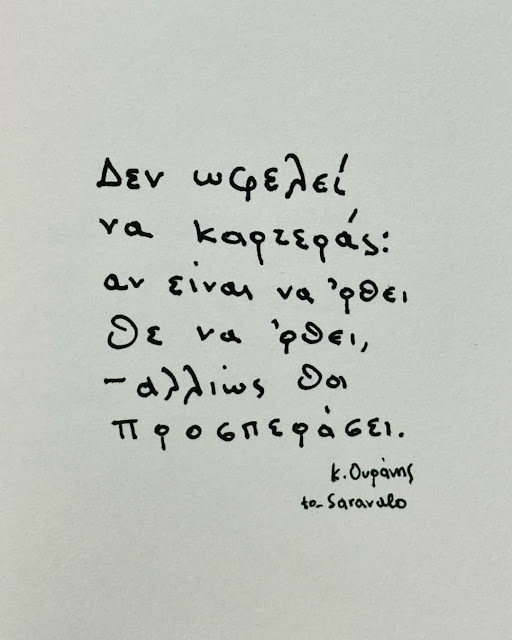 Δεν ωφελεί
να καρτεράς:
αν είναι να 'ρθει
θε να 'ρθει,
– αλλιώς θα
προσπεράσει.
Κ. Ουράνης
to_Saravalo